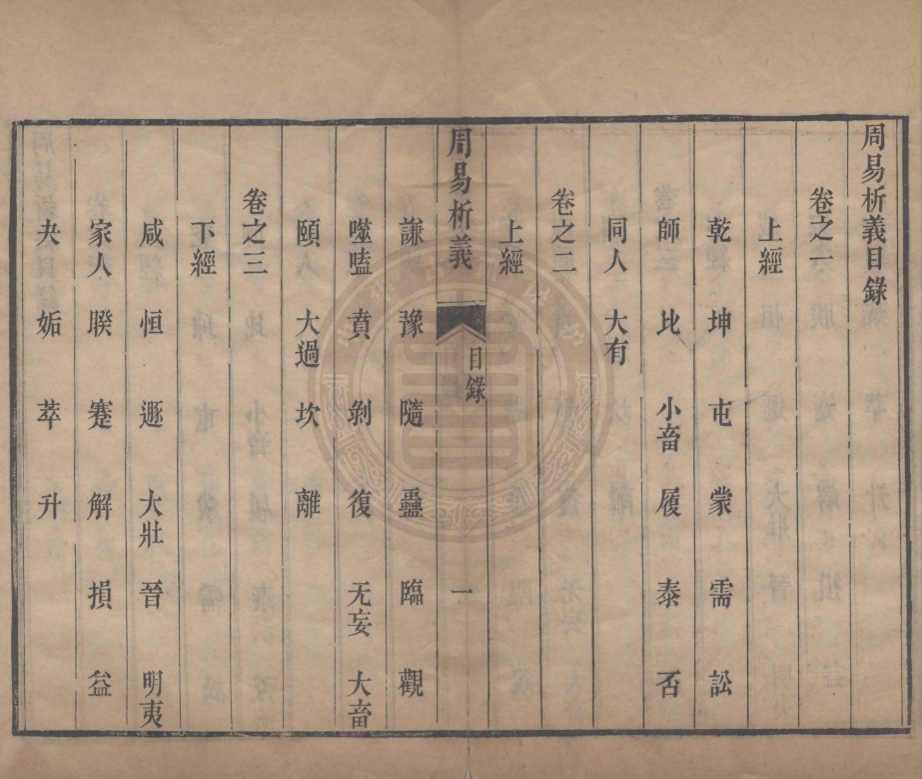 周易析義目錄
卷之一
上經
乾 坤 屯 蒙 需 訟
師 比 小畜 履 泰 否
同人 大有
卷之二
上經
周易析義 目錄 一
謙 豫 隨 蠱 臨 觀
噬嗑 賁 剝 復 无妄 大畜
頤 大過 坎 離
卷之三
下經
咸 恒 遯 大壯 晉 明夷
家人 睽 蹇 解 損 益
夬 姤 萃 升